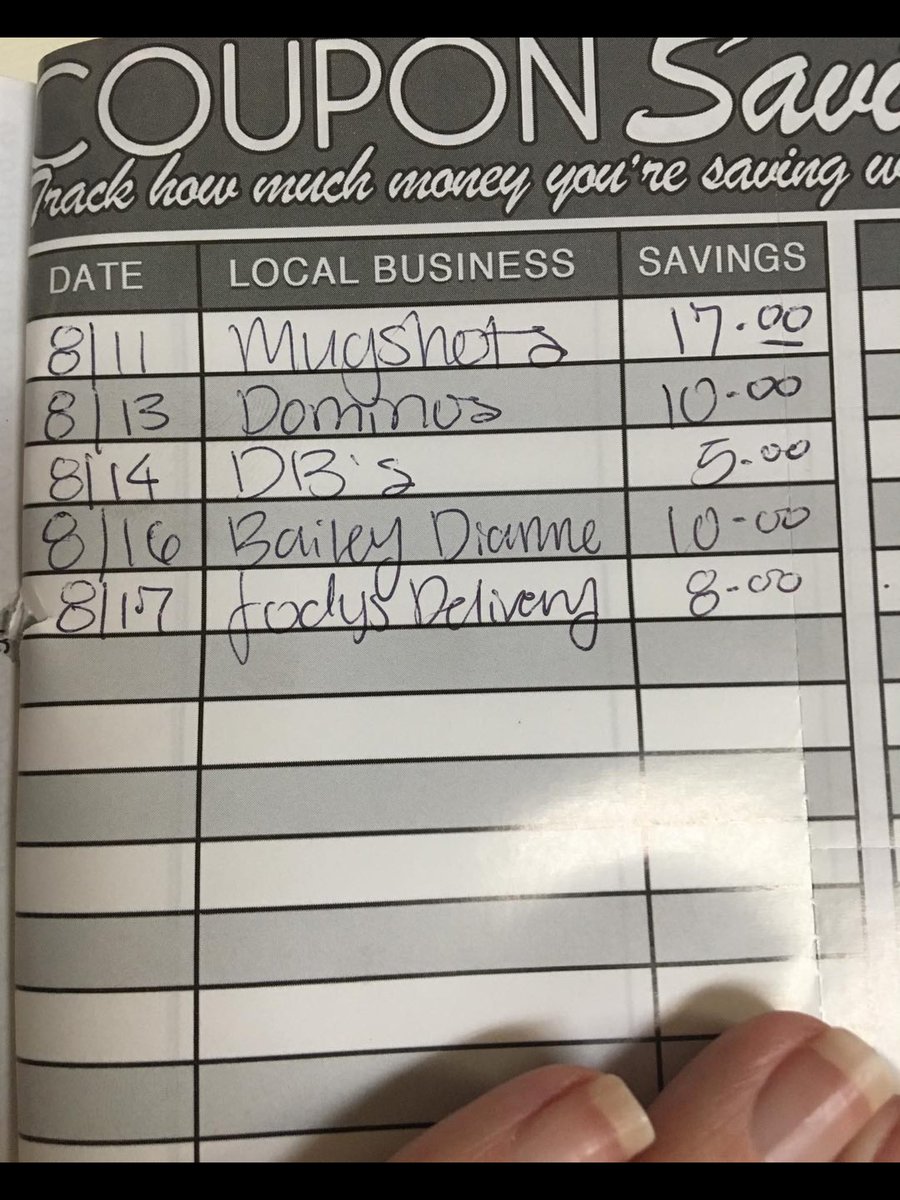 COUPON Savi
Track how much money you're saving w
DATE LOCAL BUSINESS SAVINGS
8/11 Mugshots 17.00
8/13 Dominos 10.00
8/14 DB's 5.00
8/16 Bailey Dianne 10.00
8/17 Jodys Delivery 8.00